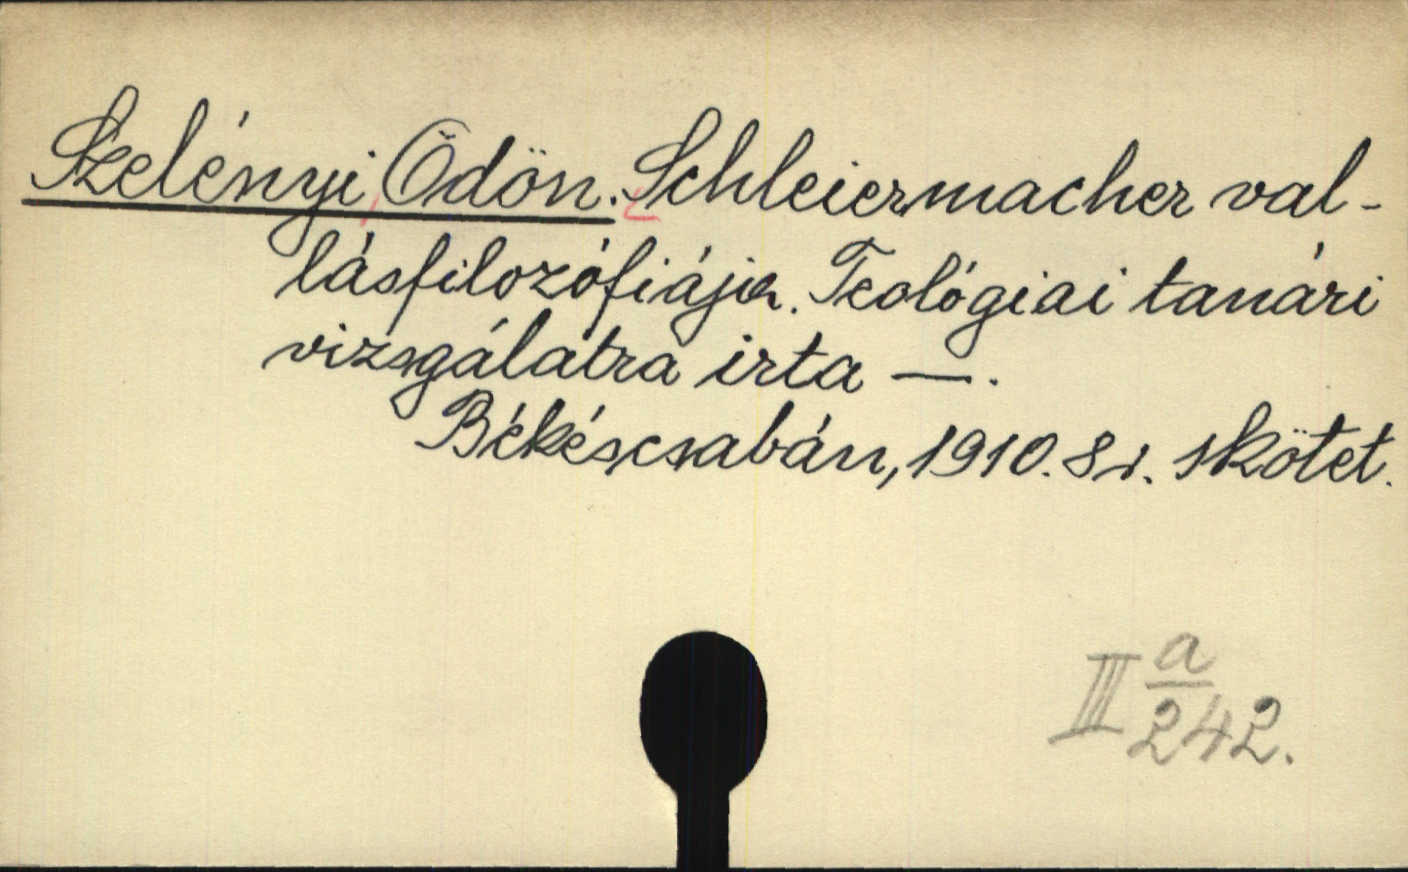 Szelényi, Ödön. Schleiermacher val-
lásfilozófiája. Teológiai tanári
vizsgálatra irta —.
Békéscsabán, 1910. 8r. 1 kötet.
III a/242.